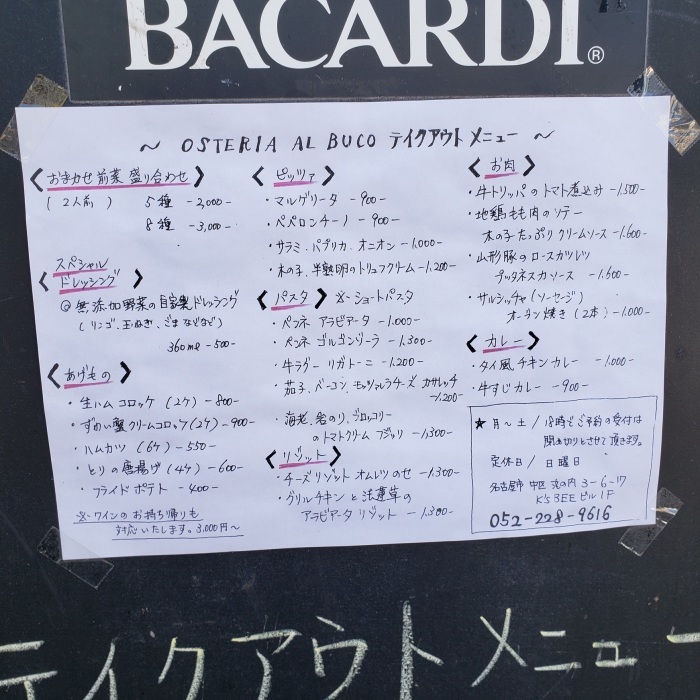 BACARDI®
～ OSTERIA AL BUCO テイクアウト メニュー ～
〈おまかせ前菜盛り合わせ〉
(2人前) 5種 -2,000-
8種 -3,000-
〈スペシャル
ドレッシング〉
◎無添加野菜の自家製ドレッシング
(リンゴ、玉ねぎ、ごまなどなど)
360ml -500-
〈あげもの〉
・生ハムコロッケ (2ケ) -800-
・ずわい蟹クリームコロッケ(2ケ) -900-
・ハムカツ (6ケ) -550-
・とりの唐揚げ (4ケ) -600-
・フライドポテト -400-
※ワインのお持ち帰りも
対応いたします。3,000円～
〈ピッツァ〉
・マルゲリータ -900-
・ペペロンチーノ -900-
・サラミ、パプリカ、オニオン -1,000-
・木の子、半熟卵のトリュフクリーム -1,200-
〈パスタ〉※ショートパスタ
・ペンネ アラビアータ -1,000-
・ペンネ ゴルゴンゾーラ -1,300-
・牛ラグー リガトーニ -1,200-
・茄子、ベーコン、モッツァレラチーズ カサレッチ
-1,200-
・海老、岩のり、ブロッコリー
のトマトクリーム フジッリ -1,300-
〈リゾット〉
・チーズリゾット オムレツのせ -1,300-
・グリルチキンと法蓮草の
アラビアータ リゾット -1,300-
〈お肉〉
・牛トリッパのトマト煮込み -1,500-
・地鶏もも肉のソテー
木の子たっぷりクリームソース -1,600-
・山形豚のロースカツレツ
プッタネスカソース -1,600-
・サルシッチャ(ソーセージ)
オーブン焼き(2本) -1,000-
〈カレー〉
・タイ風チキンカレー -1,000-
・牛すじカレー -900-
★月～土/18時迄ご予約の受付は
閉め切りとさせて頂きます。
定休日/日曜日
名古屋市 中区 丸の内 3-6-17
K'S BEE ビル 1F
052-228-9616
テイクアウトメニュー